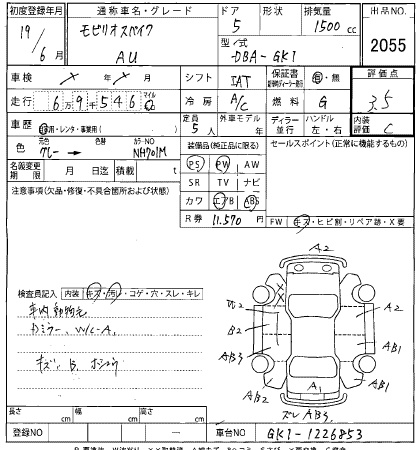 初度登録年月 通称車名・グレード ドア 形状 排気量 出品NO.
19/6月 モビリオスパイク AU 5 1500cc 2055
型・式 DBA-GK1
車検 シフト IAT 保証書 有・無 評価点
走行 6万9千546 マイル 冷房 A/C 燃料 G 3.5
車歴 自家用・レンタ・事業用 定員 5人 外車モデル ディーラー 並行 ハンドル 左・右 内装評価 C
色 元色 グレー → 色替 カラーNO NH701M 装備品(純正品に限る) セールスポイント(正常に機能するもの)
名義変更期限 月 日迄 積載 t PS PW AW
注意事項(欠品・修復・不具合箇所および状態) SR TV ナビ
カワ エアB ABS
R券 11,570円 FW キズ・ヒビ割・リペア跡・X要
検査員記入 内装 キズ・汚レ・コゲ・穴・スレ・キレ
Dミラー W/C-A
キズ、B
A2
A2
B2
AB3
AB1
AB2
AB1
A1
AB3
長さ cm 幅 cm 高さ cm
登録NO 車台NO GK1-1226853